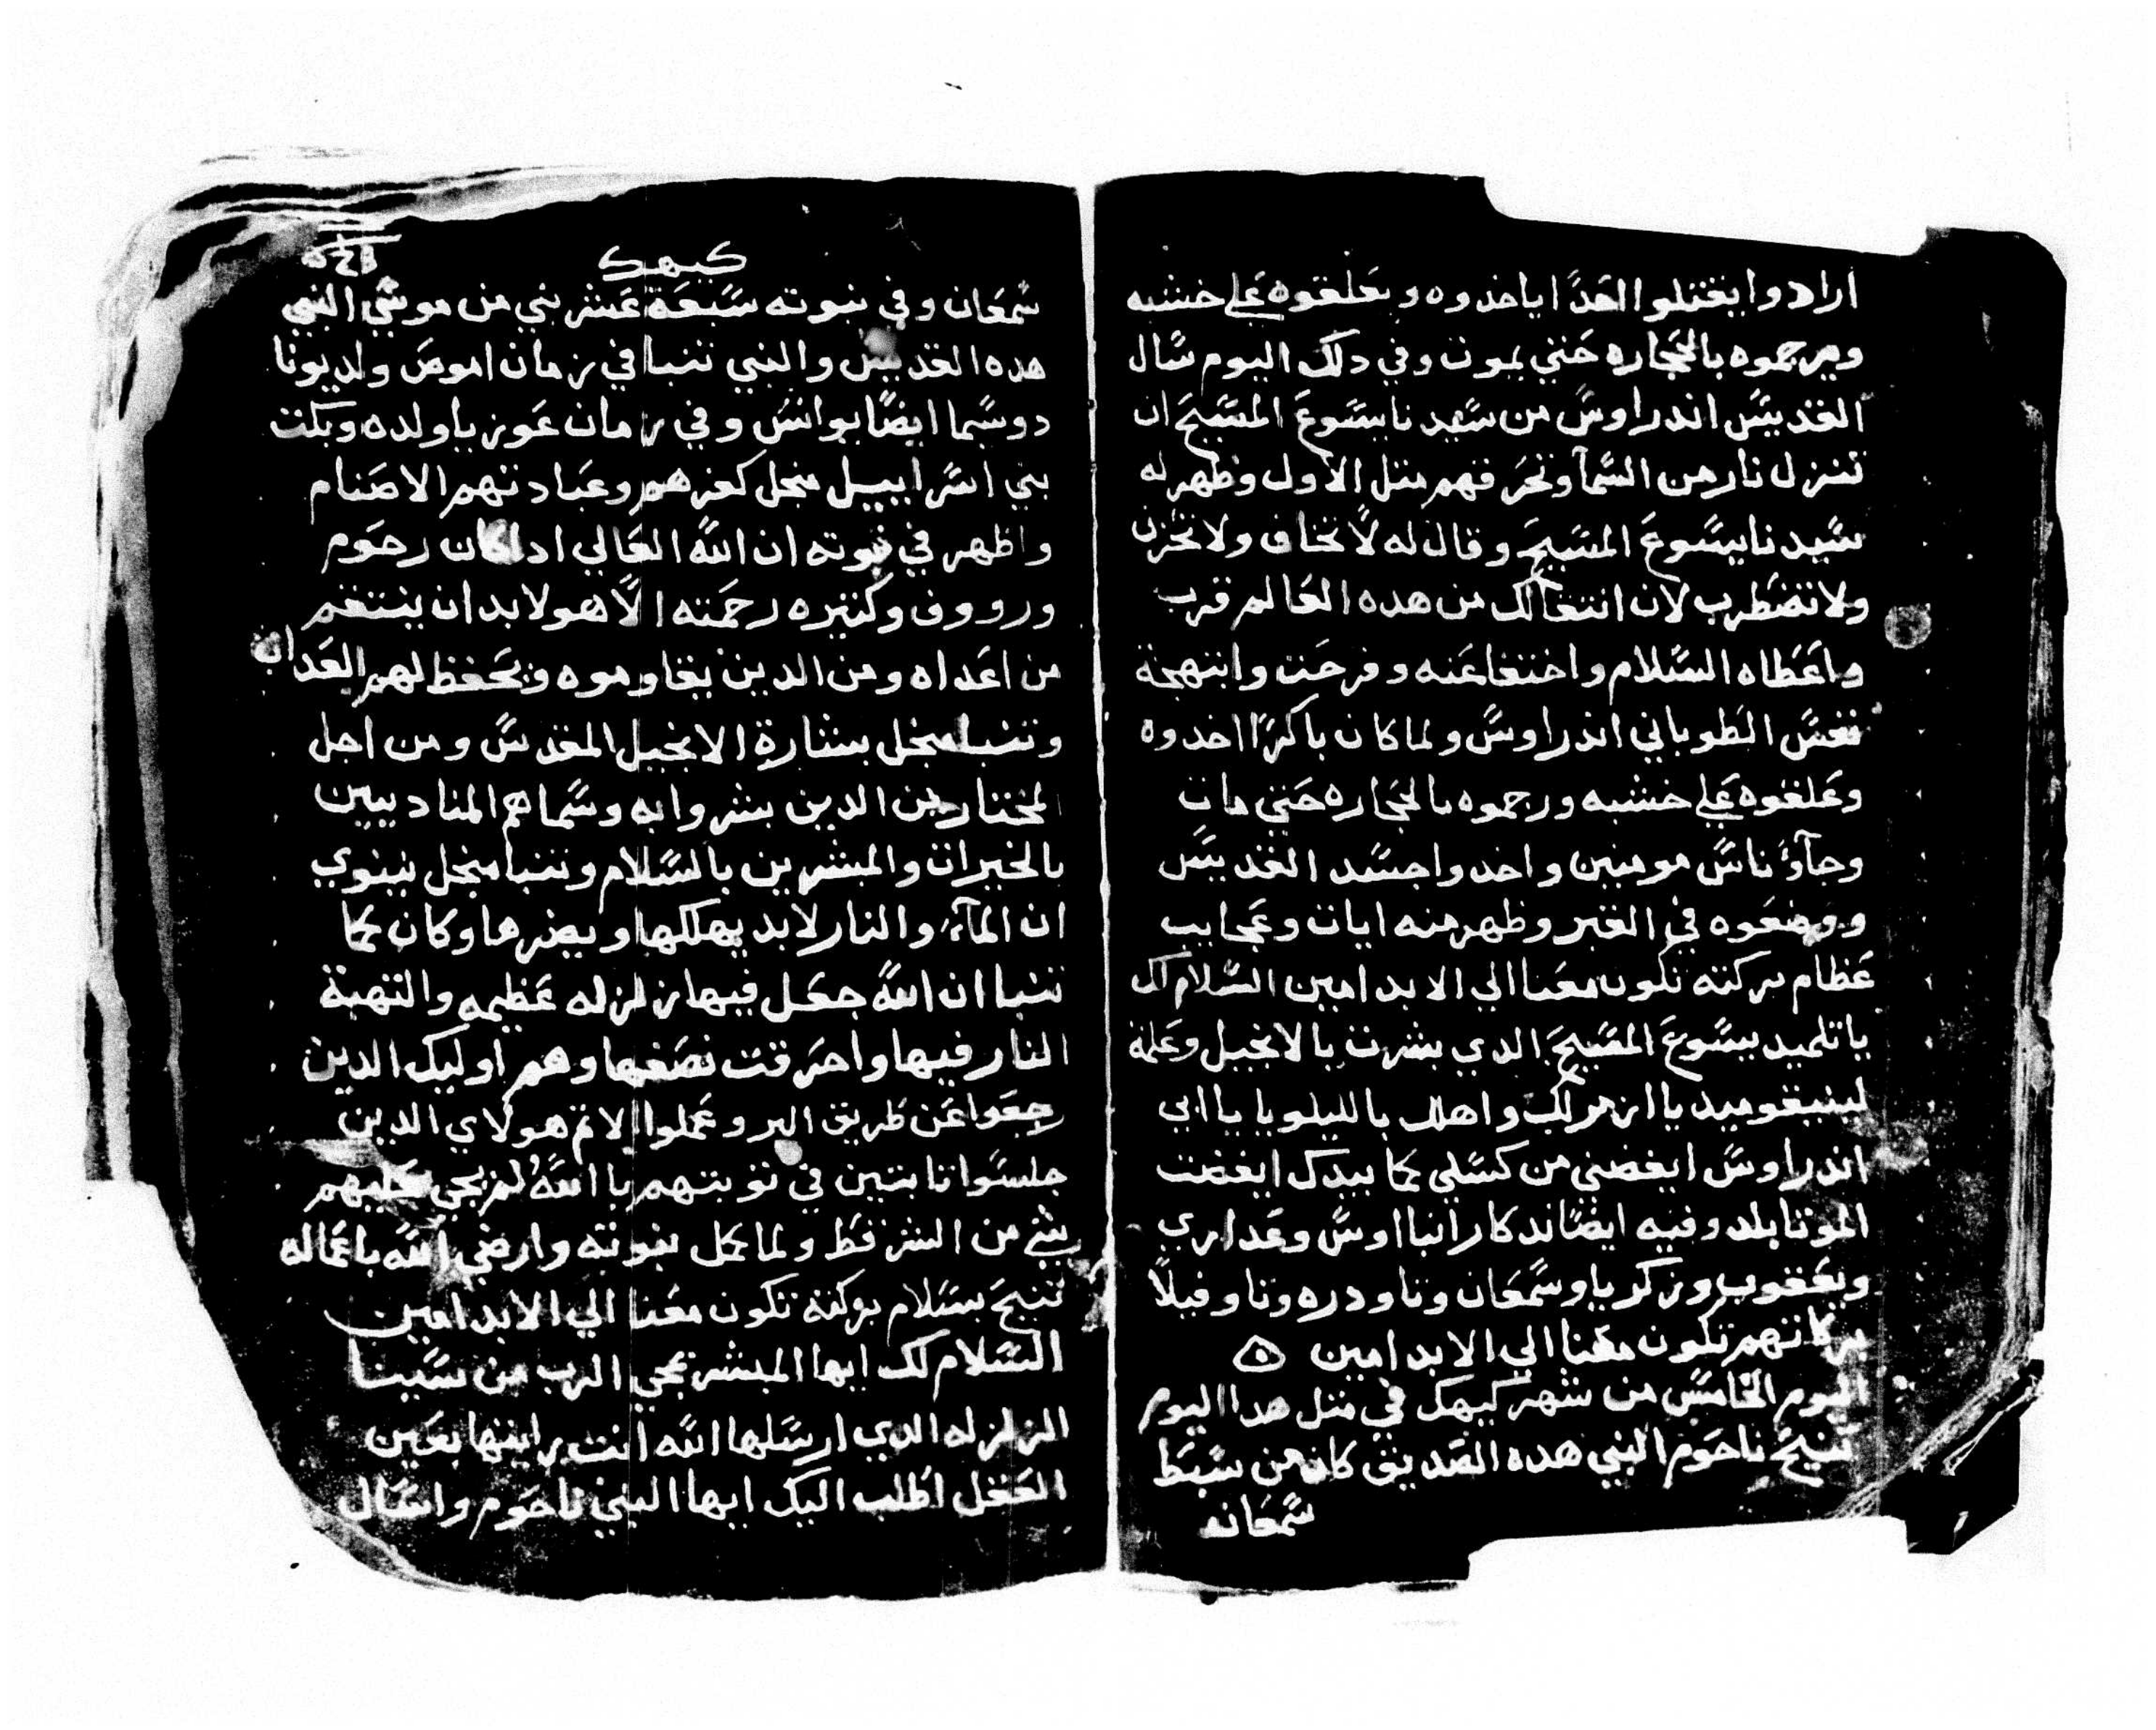 ارادوا يقتلوا الغدا ياخدوه ويعلقوه علي خشبه
ويرجموه بالحجاره حتي يموت وفي دلك اليوم سال
القديس اندراوس من سيدنا يسوع المسيح ان
تنزل نار من السمآ وتحرقهم مثل الاول وظهر له
سيدنا يسوع المسيح وقال له لا تخاف ولا تحزن
ولا تضطرب لان انتقالك من هده العالم قرب
واعطاه السلام واختفا عنه وفرحت وابتهجة
نفس الطوباني اندراوس ولما كان باكرا اخدوه
وعلقوه علي خشبه ورجموه بالحجاره حتي مات
وجآؤ ناس مومنين واخدوا جسد القديس
ووضعوه في القبر وظهر منه ايات وعجايب
عظام بركته تكون معنا الي الابد امين السلام لك
يا تلميد يسوع المسيح الدي بشرت بالانجيل وعلمة
يا ازمولك واهلل بالليلويا يا ابي
اندراوس ايقضني من كسلي كما بيدك ايقضت
الموتا بلد وفيه ايضا تدكار انبا اوس وعداري
ويعقوب وزكريا وسمعان وتاودره وتاوفيلا
بركاتهم تكون معنا الي الابد امين
اليوم الخامس من شهر كيهك في مثل هدا اليوم
تنيح ناحوم النبي هده الصديق كان من سبط
سمعان
كيهك
سمعان وفي نبوته سبعة عشر نبي من موسي النبي
هده القديس والنبي تنبا في زمان اموص ولد يونا
دوسما ايضا يوانس وفي زمان عوزيا ولده وبكت
بني اسراييل منجل كفرهم وعبادتهم الاصنام
واظهر في نبوته ان الله العالي ادا كان رحوم
وروووف وكتيره رحمته الا هو لابد ان ينتقم
من اعداه ومن الدين يقاوموه ويحفظ لهم العداب
وتنبا منجل بشارة الانجيل المقدس ومن اجل
المختارين الدين بشروا به وسماهم المناديين
بالخيرات والمبشرين بالسلام وتنبا منجل نينوي
ان المآء والنار لابد يهلكها ويضرها وكان كما
تنبا ان الله جعل فيها زلزله عظيمه والتهبة
النار فيها واحترقت نصفها وهم اوليك الدين
رجعوا عن طريق البر وعملوا الاتم هولاي الدين
جلسوا تابتين في توبتهم يا الله لم يجي عليهم
شي من الشر قط ولما كمل نبوته وارضي الله باعماله
تنيح بسلام بركته تكون معنا الي الابد امين
السلام لك ايها المبشر بمجي الرب من سينا
الزلزله الدي ارسلها الله انت رايتها بعين
العقل اطلب اليك ايها النبي ناحوم واسال